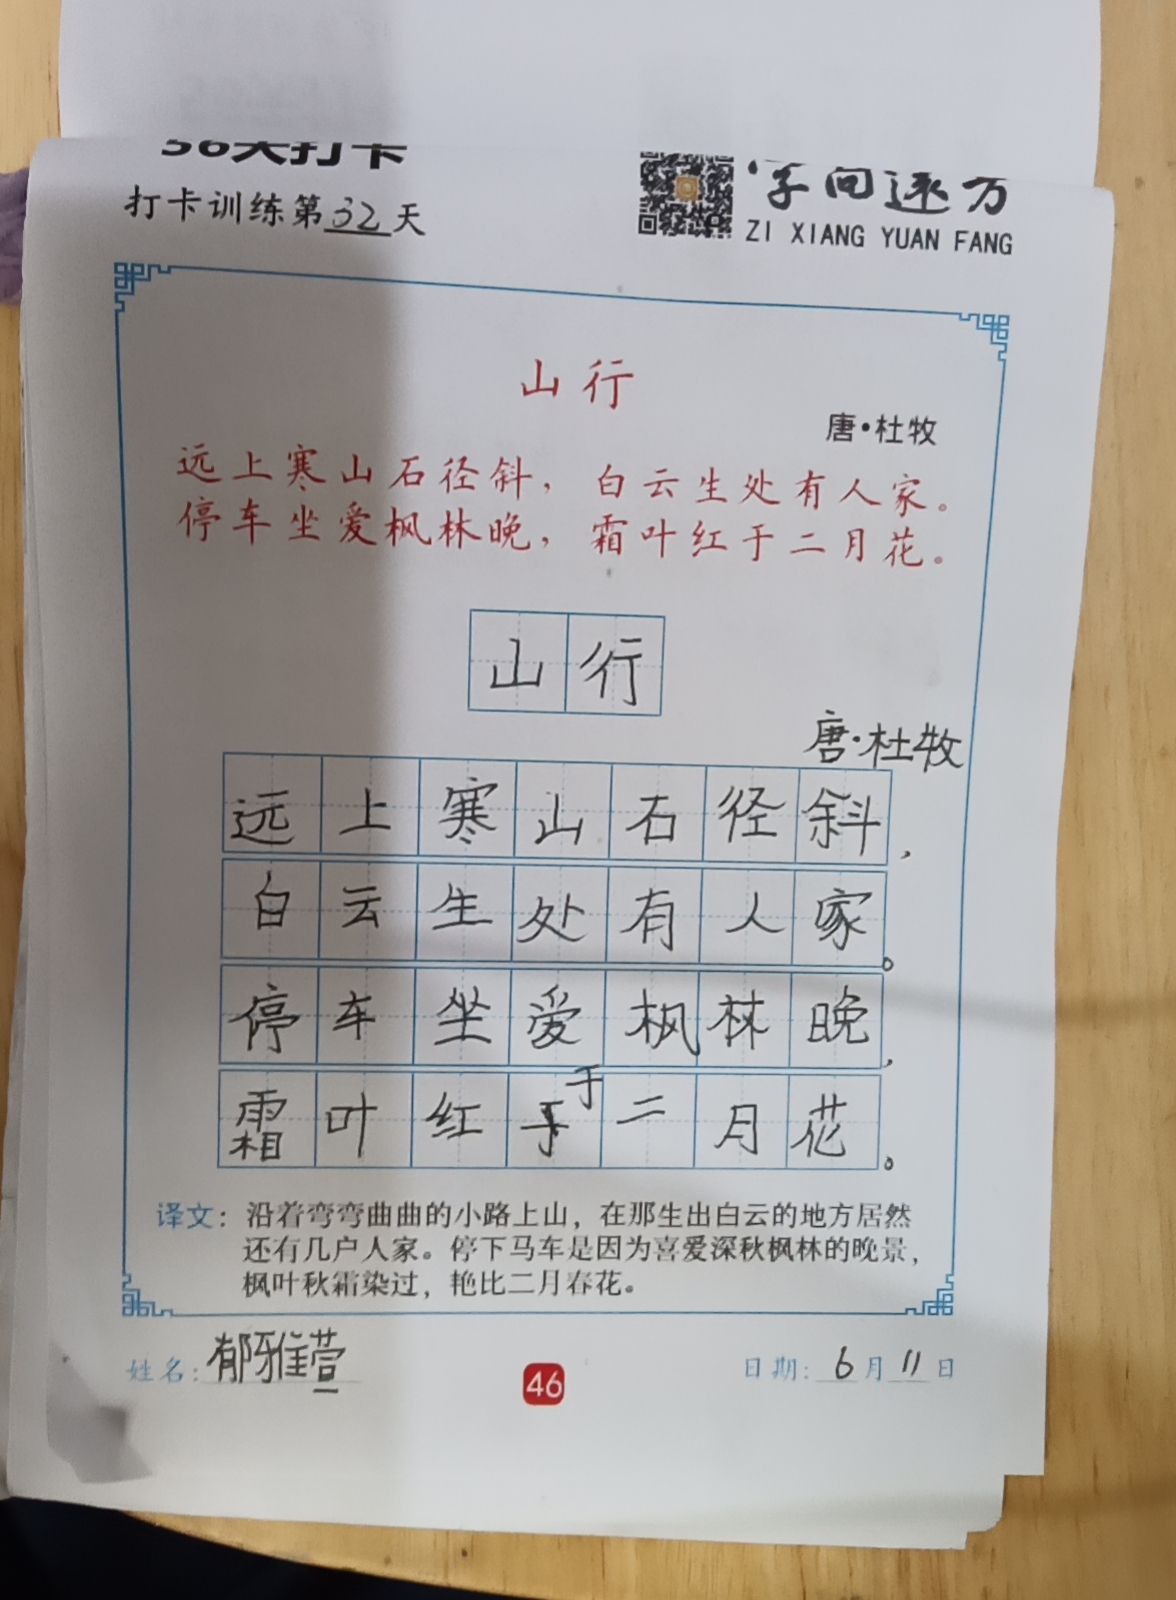 36天打卡
打卡训练第32天
字向远方
ZI XIANG YUAN FANG
山行
唐·杜牧
远上寒山石径斜，白云生处有人家。
停车坐爱枫林晚，霜叶红于二月花。
山行
唐·杜牧
远上寒山石径斜，
白云生处有人家。
停车坐爱枫林晚，
霜叶红于二月花。
译文：沿着弯弯曲曲的小路上山，在那生出白云的地方居然
还有几户人家。停下马车是因为喜爱深秋枫林的晚景，
枫叶秋霜染过，艳比二月春花。
姓名：郁雅萱
46
日期：6月11日